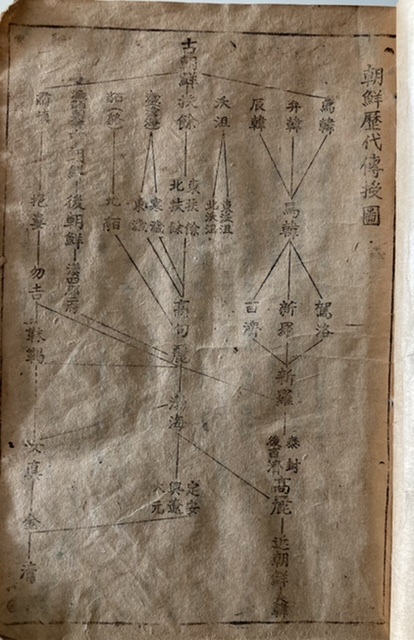 朝鮮歷代傳授圖
古朝鮮
馬韓
弁韓
辰韓
沃沮
扶餘
馬韓
東沃沮
北沃沮
東扶餘
北扶餘
寒濊
東濊
北貊
後朝鮮
挹婁
駕洛
新羅
百濟
高句麗
勿吉
靺鞨
新羅
渤海
泰封
後百濟
高麗
定安
興遼
大元
女真
金
近朝鮮
大韓
清